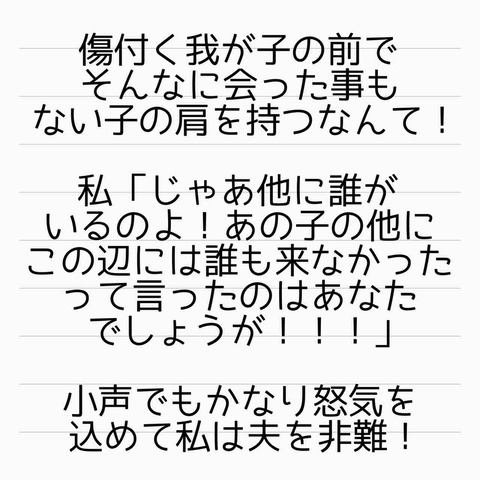 傷付く我が子の前で
そんなに会った事も
ない子の肩を持つなんて！
私「じゃあ他に誰が
いるのよ！あの子の他に
この辺には誰も来なかった
って言ったのはあなた
でしょうが！！！」
小声でもかなり怒気を
込めて私は夫を非難！